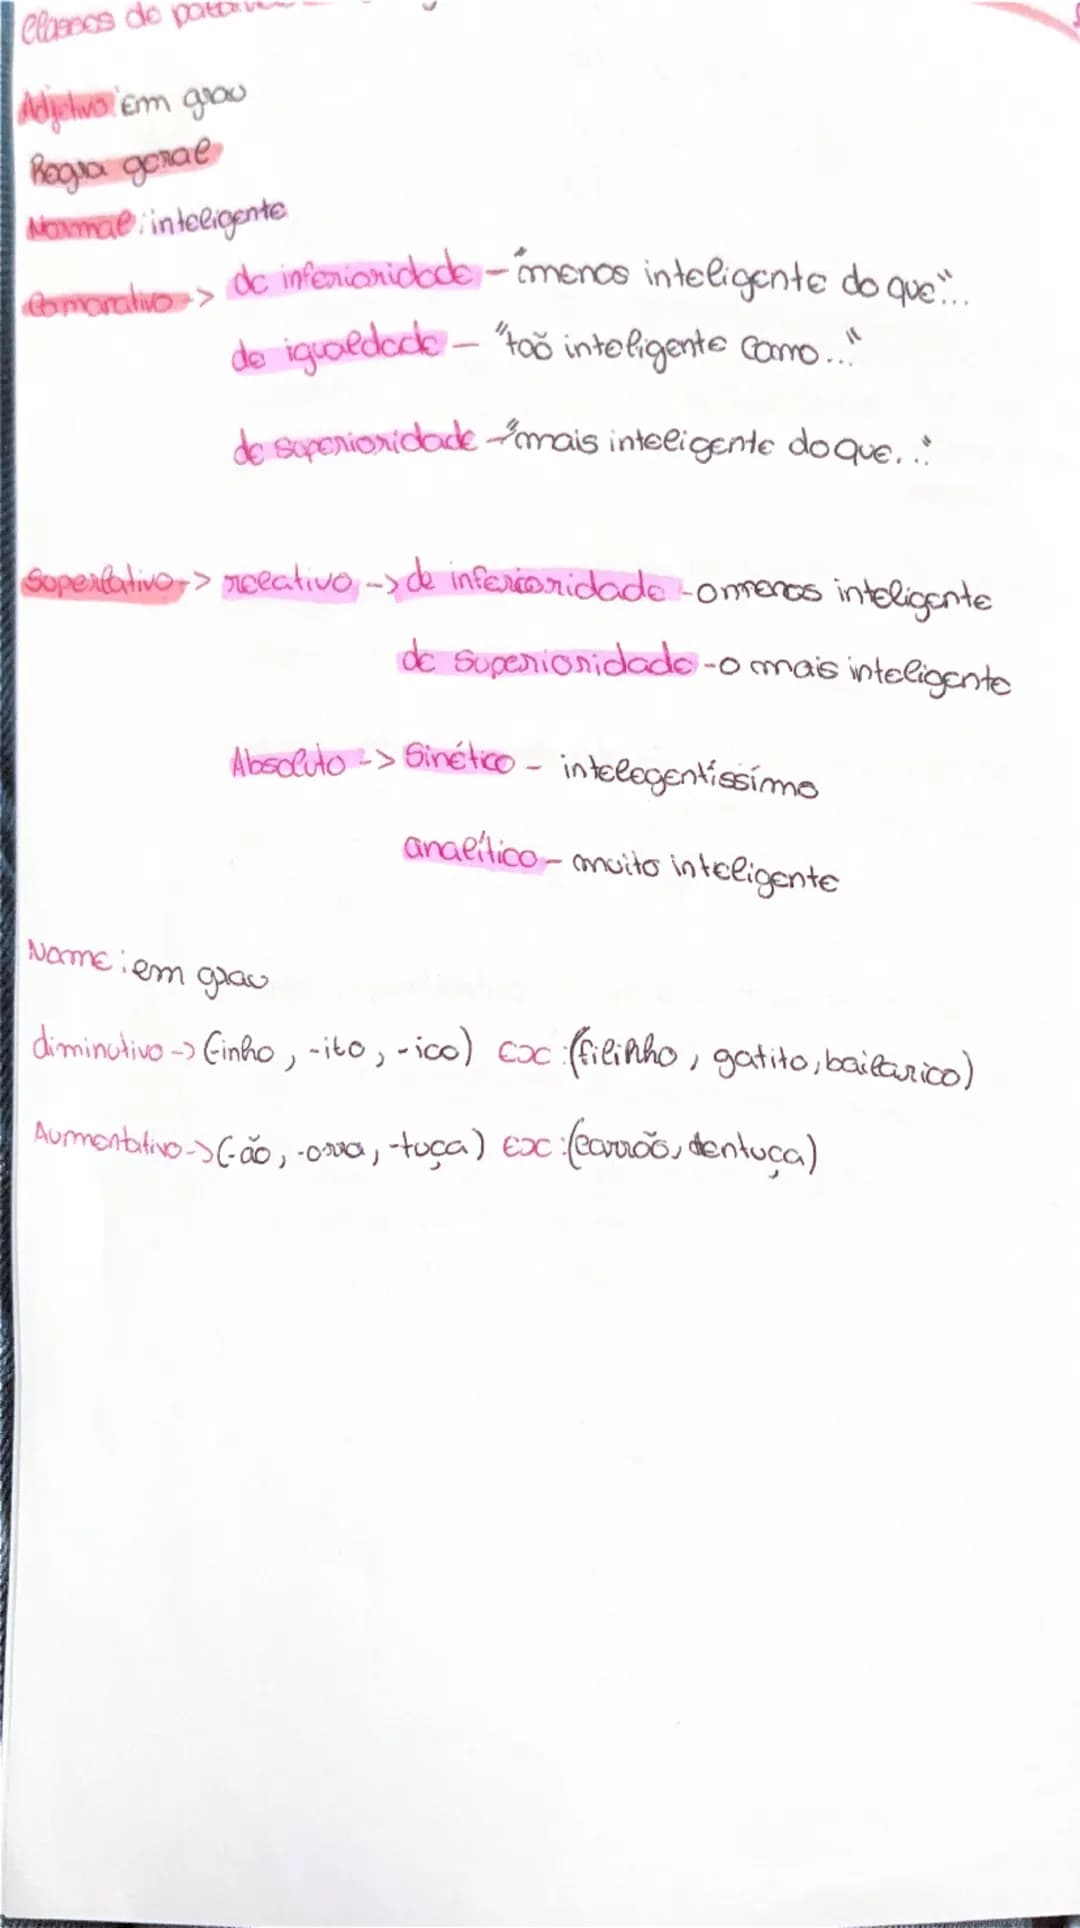 Classes de
Adjetivo: Em grau
Regra geral
Normal: inteligente
Comparativo -> de inferioridade - "menos inteligente do que"...
de igualdade - "toõ inteligente como..."
de superioridade - "mais inteligente do que..."
Superlativo -> relativo -> de inferioridade - o menos inteligente
de superioridade - o mais inteligente
Absoluto -> Sinético - intelegentíssímo
analítico - muito inteligente
Nome: em grau
diminutivo -> (-inho, -ito, -ico) Ex: (filinho, gatito, bailarico)
Aumentativo -> (-ão, -orra, -tuça) Ex: (carroõ, dentuça)